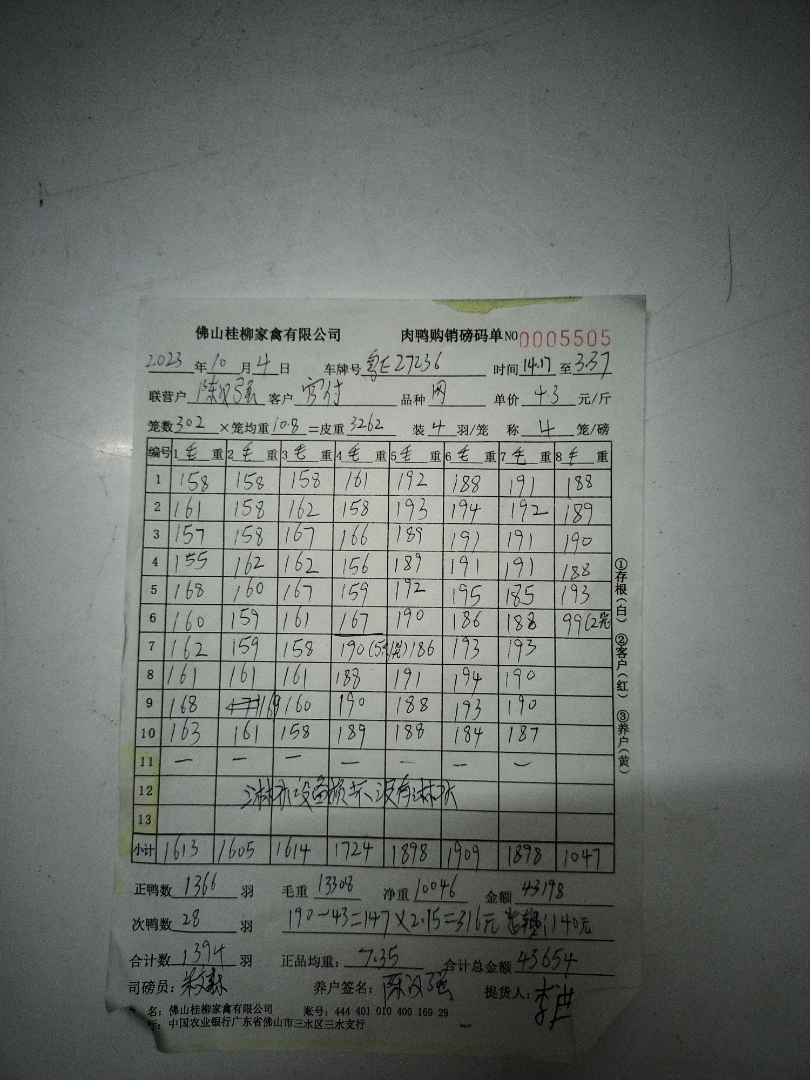 佛山桂柳家禽有限公司 肉鸭购销磅码单 NO 0005505
2023 年 10 月 4 日 车牌号 鲁E27236 时间 14.17 至 3.37
联营户 陈汉强 客户 官付 品种 网 单价 4.3 元/斤
笼数 302 ×笼均重 10.8 =皮重 3262 装 4 羽/笼 称 4 笼/磅
编号 1 毛 重 2 毛 重 3 毛 重 4 毛 重 5 毛 重 6 毛 重 7 毛 重 8 毛 重
1 158 158 158 161 192 188 191 188
2 161 158 162 158 193 194 192 189
3 157 158 167 166 189 191 191 190
4 155 162 162 156 189 191 191 188
5 168 160 167 159 192 195 185 193
6 160 159 161 167 190 186 188 99(2笼
7 162 159 158 190(5只/笼) 186 193 193
8 161 161 161 188 191 194 190
9 168 169 160 190 188 193 190
10 163 161 158 189 188 184 187
11 一 一 一 一 一 一 一
12 淋水设备损坏没有淋水
13
小计 1613 1605 1614 1724 1898 1909 1898 1047
①存根(白) ②客户(红) ③养户(黄)
正鸭数 1366 羽 毛重 13308 净重 10046 金额 43198
次鸭数 28 羽 190-43=147×2.15=316元 140元
合计数 1394 羽 正品均重: 7.35 合计总金额 43654
司磅员: 养户签名: 陈汉强 提货人: 李洪
名: 佛山桂柳家禽有限公司 账号: 444 401 010 400 169 29
行: 中国农业银行广东省佛山市三水区三水支行